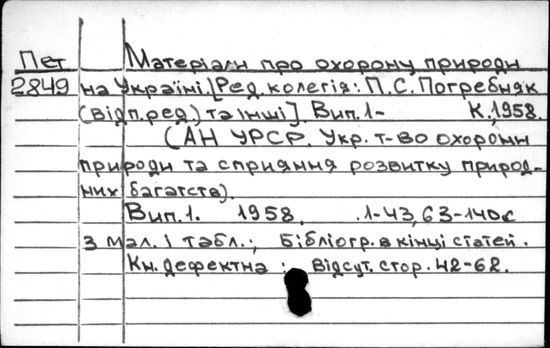 Пет. Матеріали про охорону природи
2849 на Україні. [Ред. колегія: П.С. Погребняк
(відп. ред.) та інші]. Вип. 1- К., 1958.
(АН УРСР. Укр. т-во охорони
природи та сприяння розвитку природ-
них багатств).
Вип. 1. 1958. 1-43, 63-140с
з мал. і табл.; Бібліогр. в кінці статей.
Кн. дефектна: відсут. стор. 42-62.